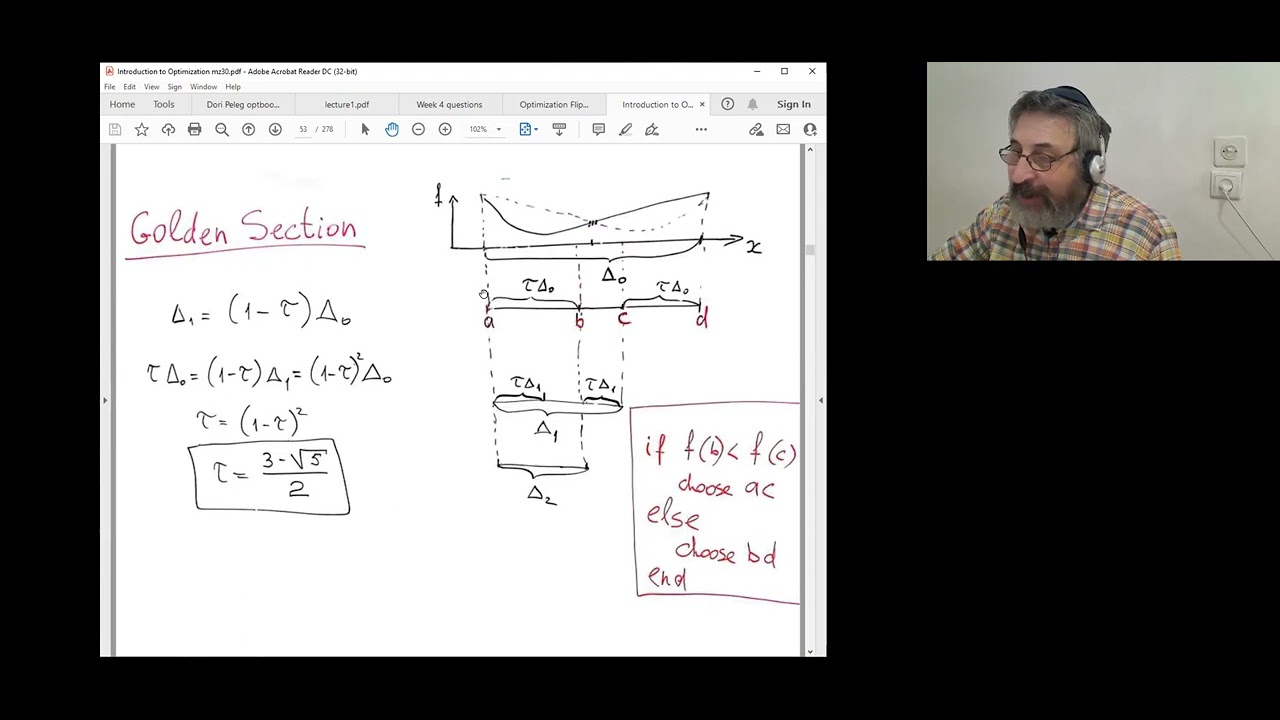 Introduction to Optimization mz30.pdf - Adobe Acrobat Reader DC (32-bit)
File Edit View Sign Window Help
Home Tools Dori Peleg optboo... lecture1.pdf Week 4 questions Optimization Flip... Introduction to O... × Sign In
53 / 278 102%
Golden Section
f
x
Δ₀
τΔ₀ τΔ₀
a b c d
Δ₁ = (1-τ)Δ₀
τΔ₀ = (1-τ)Δ₁ = (1-τ)²Δ₀
τ = (1-τ)²
τ = (3-√5)/2
τΔ₁ τΔ₁
Δ₁
Δ₂
if f(b) < f(c)
choose ac
else
choose bd
end